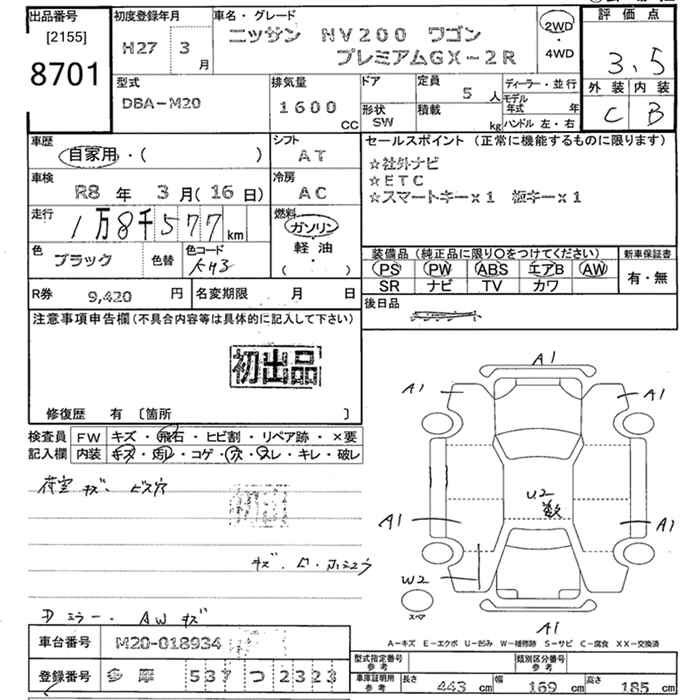 出品番号 初度登録年月 車名・グレード 評価点
[2155] H27 3 月 ニッサン NV200 ワゴン 2WD
8701 プレミアムGX-2R 4WD 3.5
型式 排気量 ドア 定員 5 人 ディーラー・並行 外装 内装
DBA-M20 1600 CC 形状 SW 積載 kg モデル年式 年 C B
ハンドル 左・右
車歴 自家用・( ) シフト AT セールスポイント (正常に機能するものに限ります)
車検 R8 年 3 月 (16 日) 冷房 AC ☆社外ナビ
☆ETC
☆スマートキー×1 板キー×1
走行 1万8千577 km 燃料 ガソリン
軽油
( )
色 ブラック 色替 色コード 装備品 (純正品に限り○をつけてください) 新車保証書
PS PW ABS エアB AW 有・無
SR ナビ TV カワ
R券 9,420 円 名変期限 月 日 後日品
注意事項申告欄 (不具合内容等は具体的に記入して下さい)
初出品
修復歴 有 [箇所 ]
検査員 FW キズ・飛石・ヒビ割・リペア跡・×要
記入欄 内装 キズ・汚レ・コゲ・穴・スレ・キレ・破レ
A1
A1 A1
荷室 キズ・ビス穴
U2
A1 A1
W2
スペア
Dミラー・AWキズ
A1
A-キズ E-エクボ U-凹み W-補修跡 S-サビ C-腐食 XX-交換済
車台番号 M20-018934
型式指定番号 参考 類別区分番号 参考
登録番号 多摩 537 つ 2323
車庫証明用 参考 長さ 443 cm 幅 169 cm 高さ 185 cm